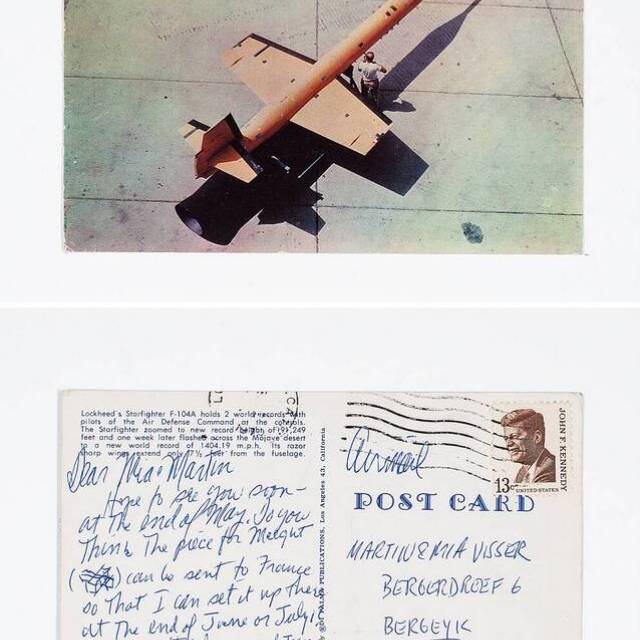 Lockheed's Starfighter F-104A holds 2 world records with
pilots of the Air Defense Command at the controls.
The Starfighter zoomed to new record height of 91,249
feet and one week later flashed across the Mojave desert
to a new world record of 1404.19 m.p.h. Its razor
sharp wings extend only 7½ feet from the fuselage.
Dear Mia & Martin
Hope to see you soon –
at the end of May. Do you
Think The piece for
can be sent to France
so that I can set it up there
at The end of June or July.
PUBLICATIONS, Los Angeles 43, California
Airmail
POST CARD
JOHN F. KENNEDY
13c UNITED STATES
MARTIN & MIA VISSER
BERGERDREEF 6
BERGEYK